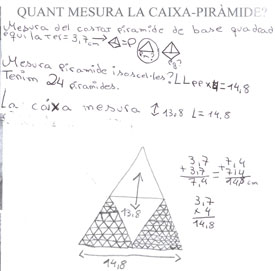 QUANT MESURA LA CAIXA-PIRÀMIDE?
Mesura del costat piramide de base quadrad
equilater= 3,7cm → =P
Mesura piramide isoscel·les? LLepp x4 = 14,8
Tenim 24 piramides.
La caixa mesura ↕ 13,8 L= 14,8
3,7
+ 3,7
7,4
7,4
+ 7,4
14,8 cm
3,7
x 4
14,8
13,8
14,8